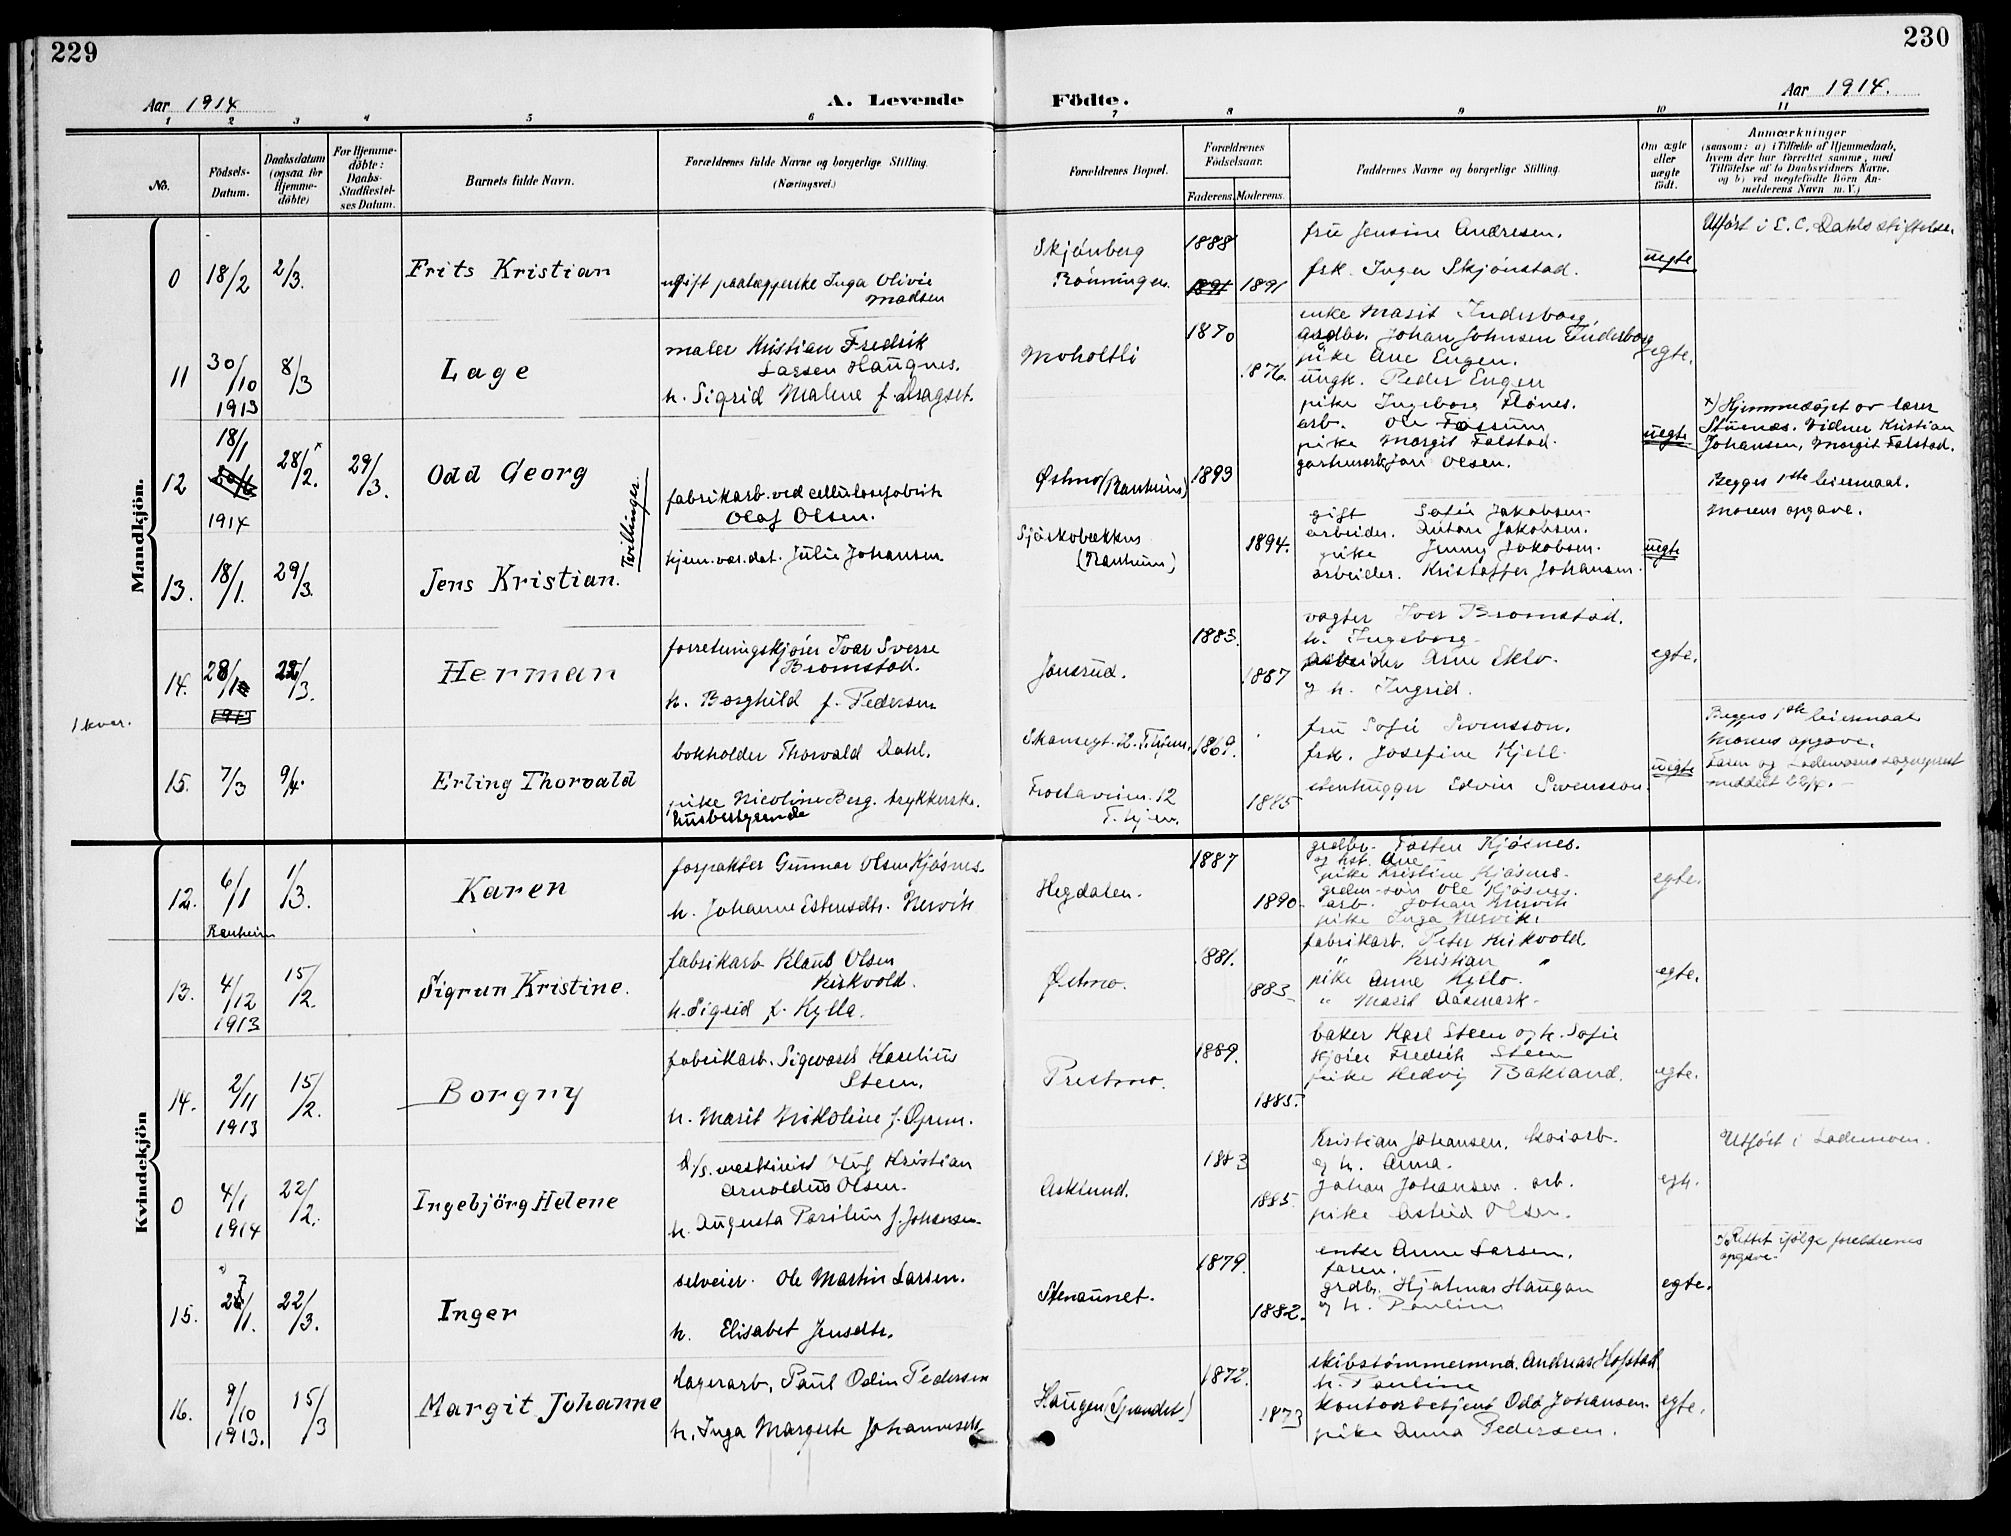 229
230
Aar 1914
A. Levende
Födte.
Aar 1914.
1 2 3 4 5 6 7 8 9 10 11
No.
Födsels-
Datum.
Daabsdatum
(ogsaa for
Hjemme-
döbte)
For Hjemme-
döbte:
Daabs-
Stadfæstel-
ses Datum.
Barnets fulde Navn.
Forældrenes fulde Navne og borgerlige Stilling.
(Næringsvei.)
Forældrenes Bopæl.
Forældrenes
Födselsaar.
Faderens. Moderens.
Faddernes Navne og borgerlige Stilling.
Om ægte
eller
uægte
födt.
Anmærkninger
(saasom: a) i Tilfælde af Hjemmedaab,
hvem der har forrettet samme, med
Tilföielse af to Daabsvidners Navne.
og b) ved uægtefödte Börn An-
melderens Navn m. V.)
Mandkjön.
0 18/2 2/3. Frits Kristian
ugift paalæggerske Inga Olivie
Madsen
Skjønberg
Rönningen.
1888
1891 1891
fru Jensine Andresen.
frk. Inger Skjönstad.
uegte
Utført i E. C. Dahls stiftelse.
11 30/10 1913 8/3 Lage
maler Kristian Fredrik
Larsen Haugnes.
h. Sigrid Malene f. Dragset.
Moholtli
1870
1876.
enke Marit Inderborg,
grdbr. Johan Johnsen Inderborg
pike Ane Engen.
ungk. Peder Engen
egte.
12 18/1 1914 28/2. 29/3. Odd Georg
Tvillinger.
fabrikarb. ved cellulosefabrik
Olaf Olsen.
Østmo (Ranheim)
1893
pike Ingeborg Flønes.
arb. Ole Fossum
pike Margit Falstad.
Olsen.
uegte
x) Hjemmedøpt av lærer
Stuenæs. Vidner Kristian
Johansen, Margit Falstad.
Begges 1ste leiermaal.
Morens opgave.
13. 18/1. 29/3. Jens Kristian.
hjem.vær.dat. Julie Johansen
Sjøskobækken
(Ranheim)
1894.
gift Sofie Jakobsen
arbeider. Anton Jakobsen.
pike Jenny Jakobsen.
arbeider. Kristoffer Johansen.
uegte
14. 28/1 1913 22/3. Herman
forretningskjører Ivar Sverre
Bromstad.
h. Borghild f. Pedersen
Jonsrud.
1883.
1887
vægter Iver Bromstad.
h. Ingeborg.
arbeider Arne Eklo.
og h. Ingrid.
egte.
1 kver.
15. 7/3 9/4. Erling Thorvald
bokholder Thorvald Dahl.
pike Nicoline Berg. trykkerske.
husbestyrende
Skansegt. 12. T.hjem.
Frostaveien. 12
T.hjem.
1869.
1885
fru Sofie Svensson.
frk. Josefine Hjell.
stenhugger Edvin Svensson.
uegte
Begges 1ste leiermaal
Morens opgave.
Faren og Lademoens sogneprest
meddelt 22/4. -
Kvindekjön
12. 6/1 1/3. Karen
Ranheim
forpakter Gunnar Olsen Kjøsnes.
h. Johanne Estensdtr. Nervik
Hegdalen.
1887
1890
grdbr. Fosten Kjøsnes.
og hst. Ane
pike Kristine Kjøsnes.
grdm-søn Ole Kjøsnes.
arb. Johan Nervik
pike Inga Nervik.
egte.
13. 4/12 1913 15/2. Sigrun Kristine.
fabrikarb. Klaus Olsen
Kirkvold.
h. Sigrid f. Hylla.
Østmo.
1881.
1883
fabrikarb. Peter Kirkvold.
" Kristian "
pike Anne Hyllo.
" Marit Aasmark.
egte.
14. 2/11 1913 15/2. Borgny
fabrikarb. Sigvard Kaselius
Steen.
h. Marit Nikoline f. Øfrum.
Prestmo.
1889.
1885.
baker Karl Steen og h. Sofie
kjører Fredrik Steen
pike Hedvig Bakland.
egte.
0 4/1 1914 22/2. Ingebjörg Helene
d/s. maskinist Olaf Kristian
Arnoldus Olsen.
h. Augusta Pasiline f. Johansen.
Asklund.
1883
1885.
Kristian Johansen. kaiarb.
og h. Anna.
Johan Johansen. arb.
pike Astrid Olsen.
egte.
Utført i Lademoen.
15. 27/1. 22/3. Inger
selveier. Ole Martin Larsen.
h. Elisabet Jensdtr.
Stenaunet.
1879.
1882.
enke Anne Larsen.
faren.
grdbr. Hjalmar Haugan
og h. Pauline
egte.
x) Rettet ifølge foreldrenes
opgave.
16. 9/10 1913. 15/3 Margit Johanne
lagerarb. Paul Odin Pedersen
h. Inga Margrete Johannesdtr.
Haugen (Grandet)
1872.
1873
skibstømmermnd. Andreas Hofstad
h. Pauline
kontorbetjent Odd Johansen.
pike Anna Pedersen.
egte.